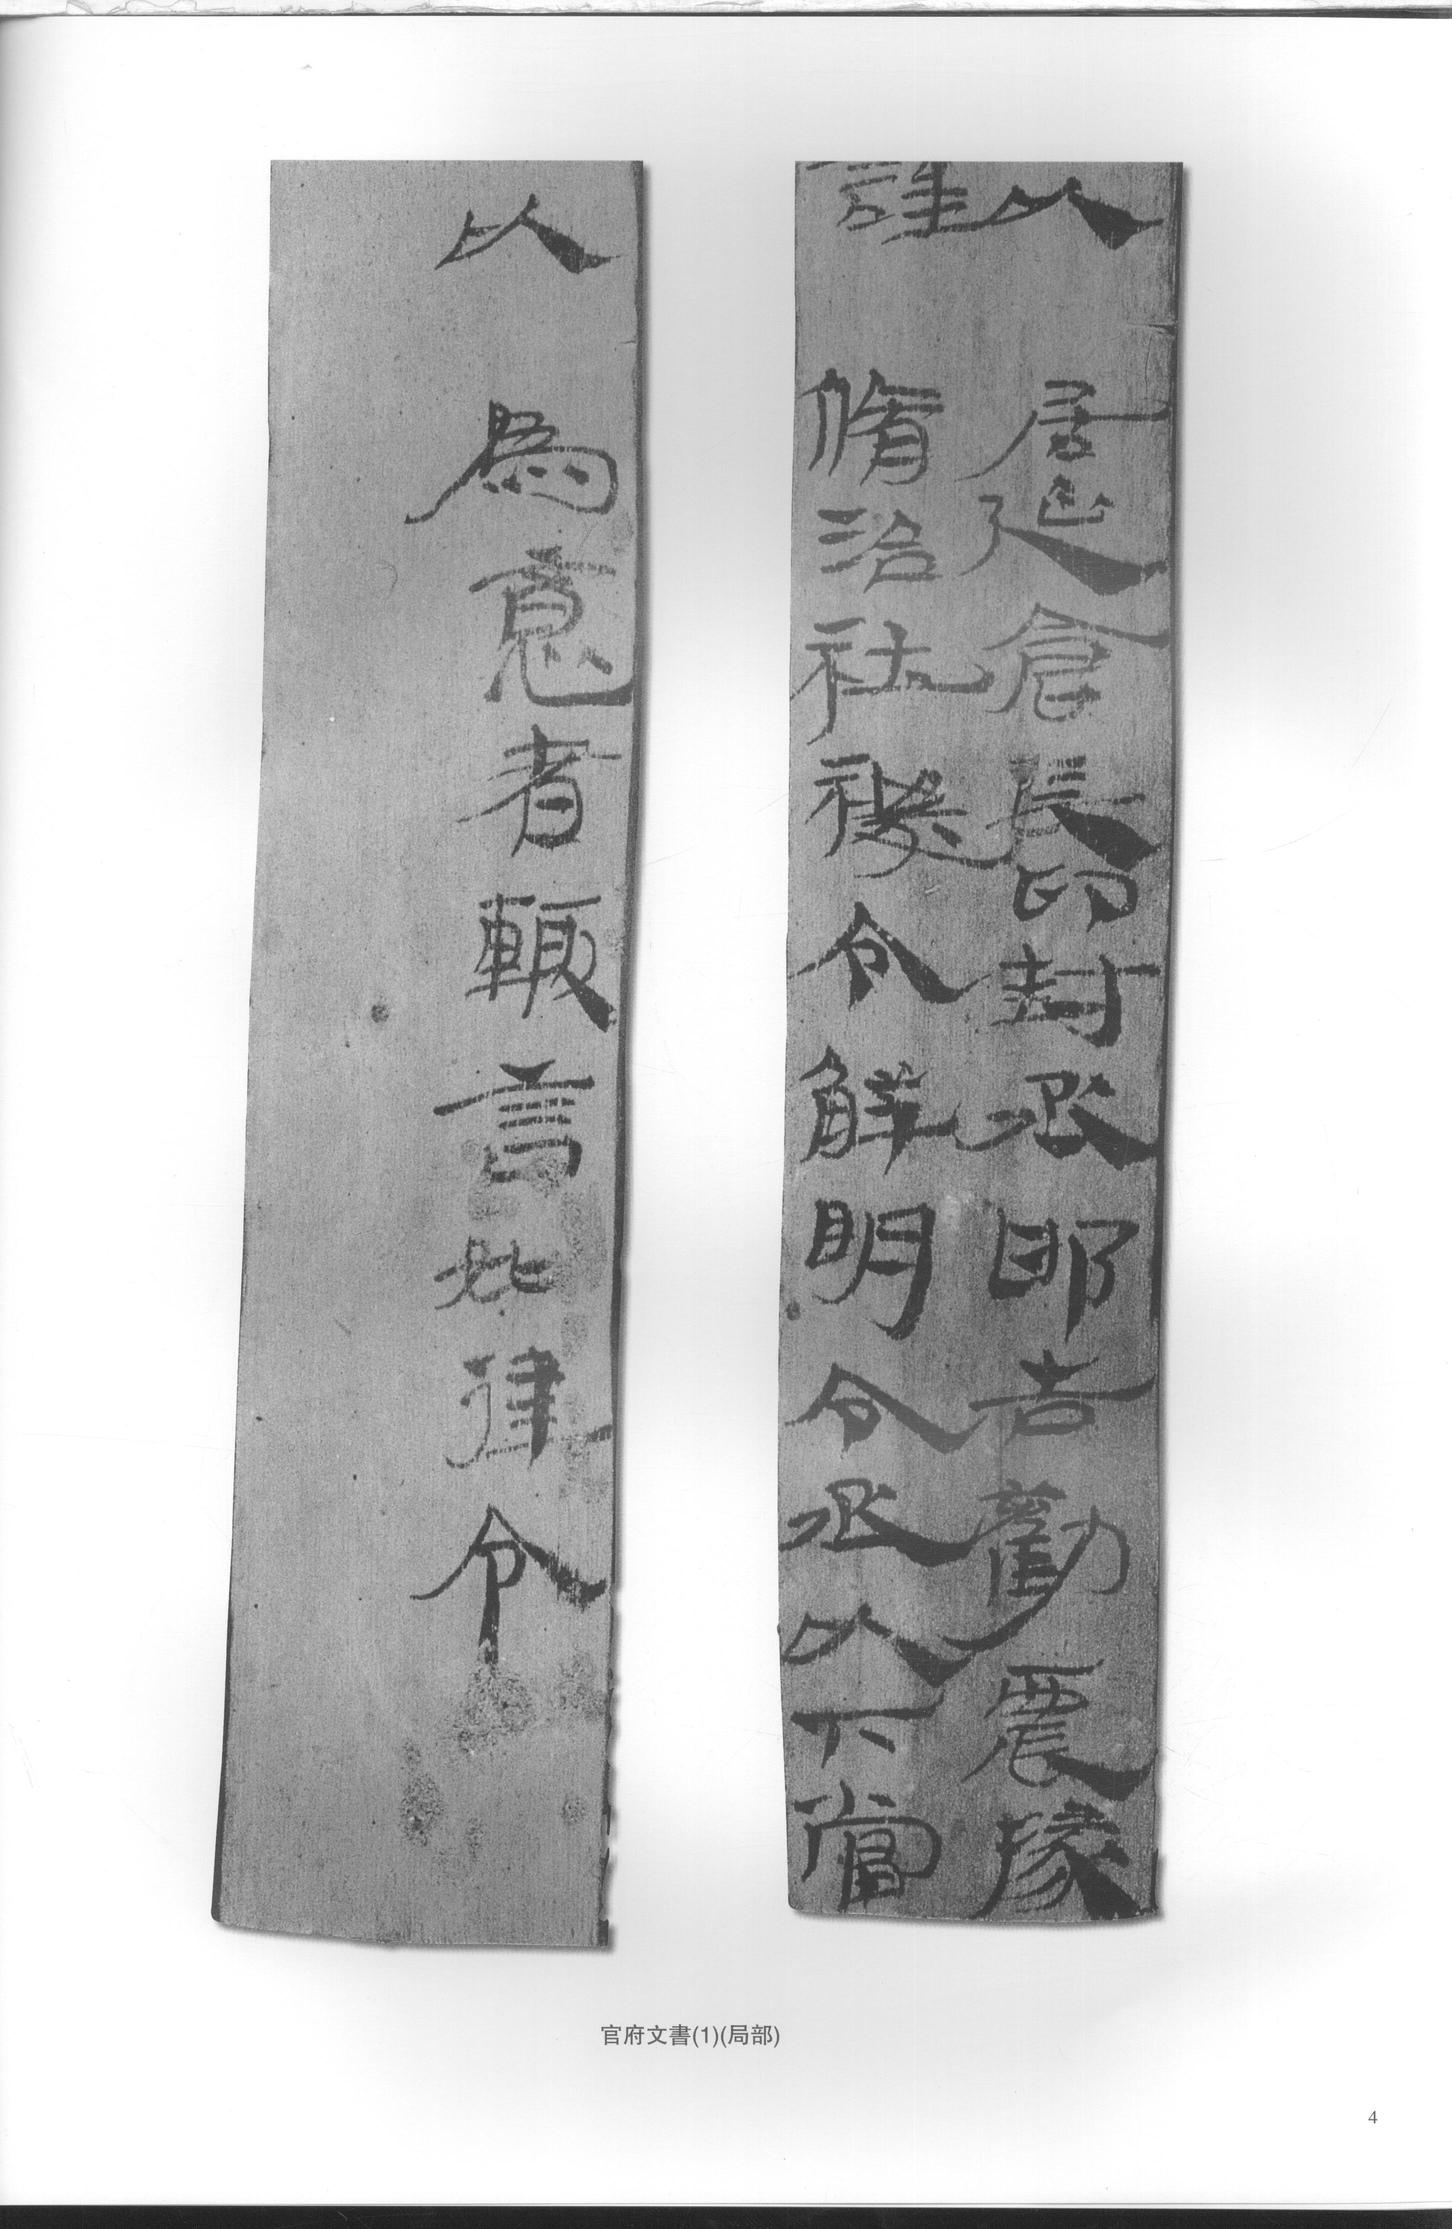 以居延倉長印封丞邯告勸農掾
謹脩治社稷令鮮明令丞以下當
以為意者輒言如律令
官府文書(1)(局部)
4